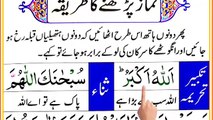 نماز پڑھنے کا طریقہ
پھر دونوں ہاتھ اس طرح اٹھائیں کہ دونوں ہتھیلیاں قبلہ رخ ہو
جائیں اور انگوٹھے کا سرکان کی لو کے برابر ہو جائے تو کہے۔
تکبیر تحریمہ اَللّٰهُ اَكْبَرُ ثناء سُبْحٰنَكَ اللّٰهُمَّ
اللہ سب سے بڑا ہے پاک ہے تو اے اللہ